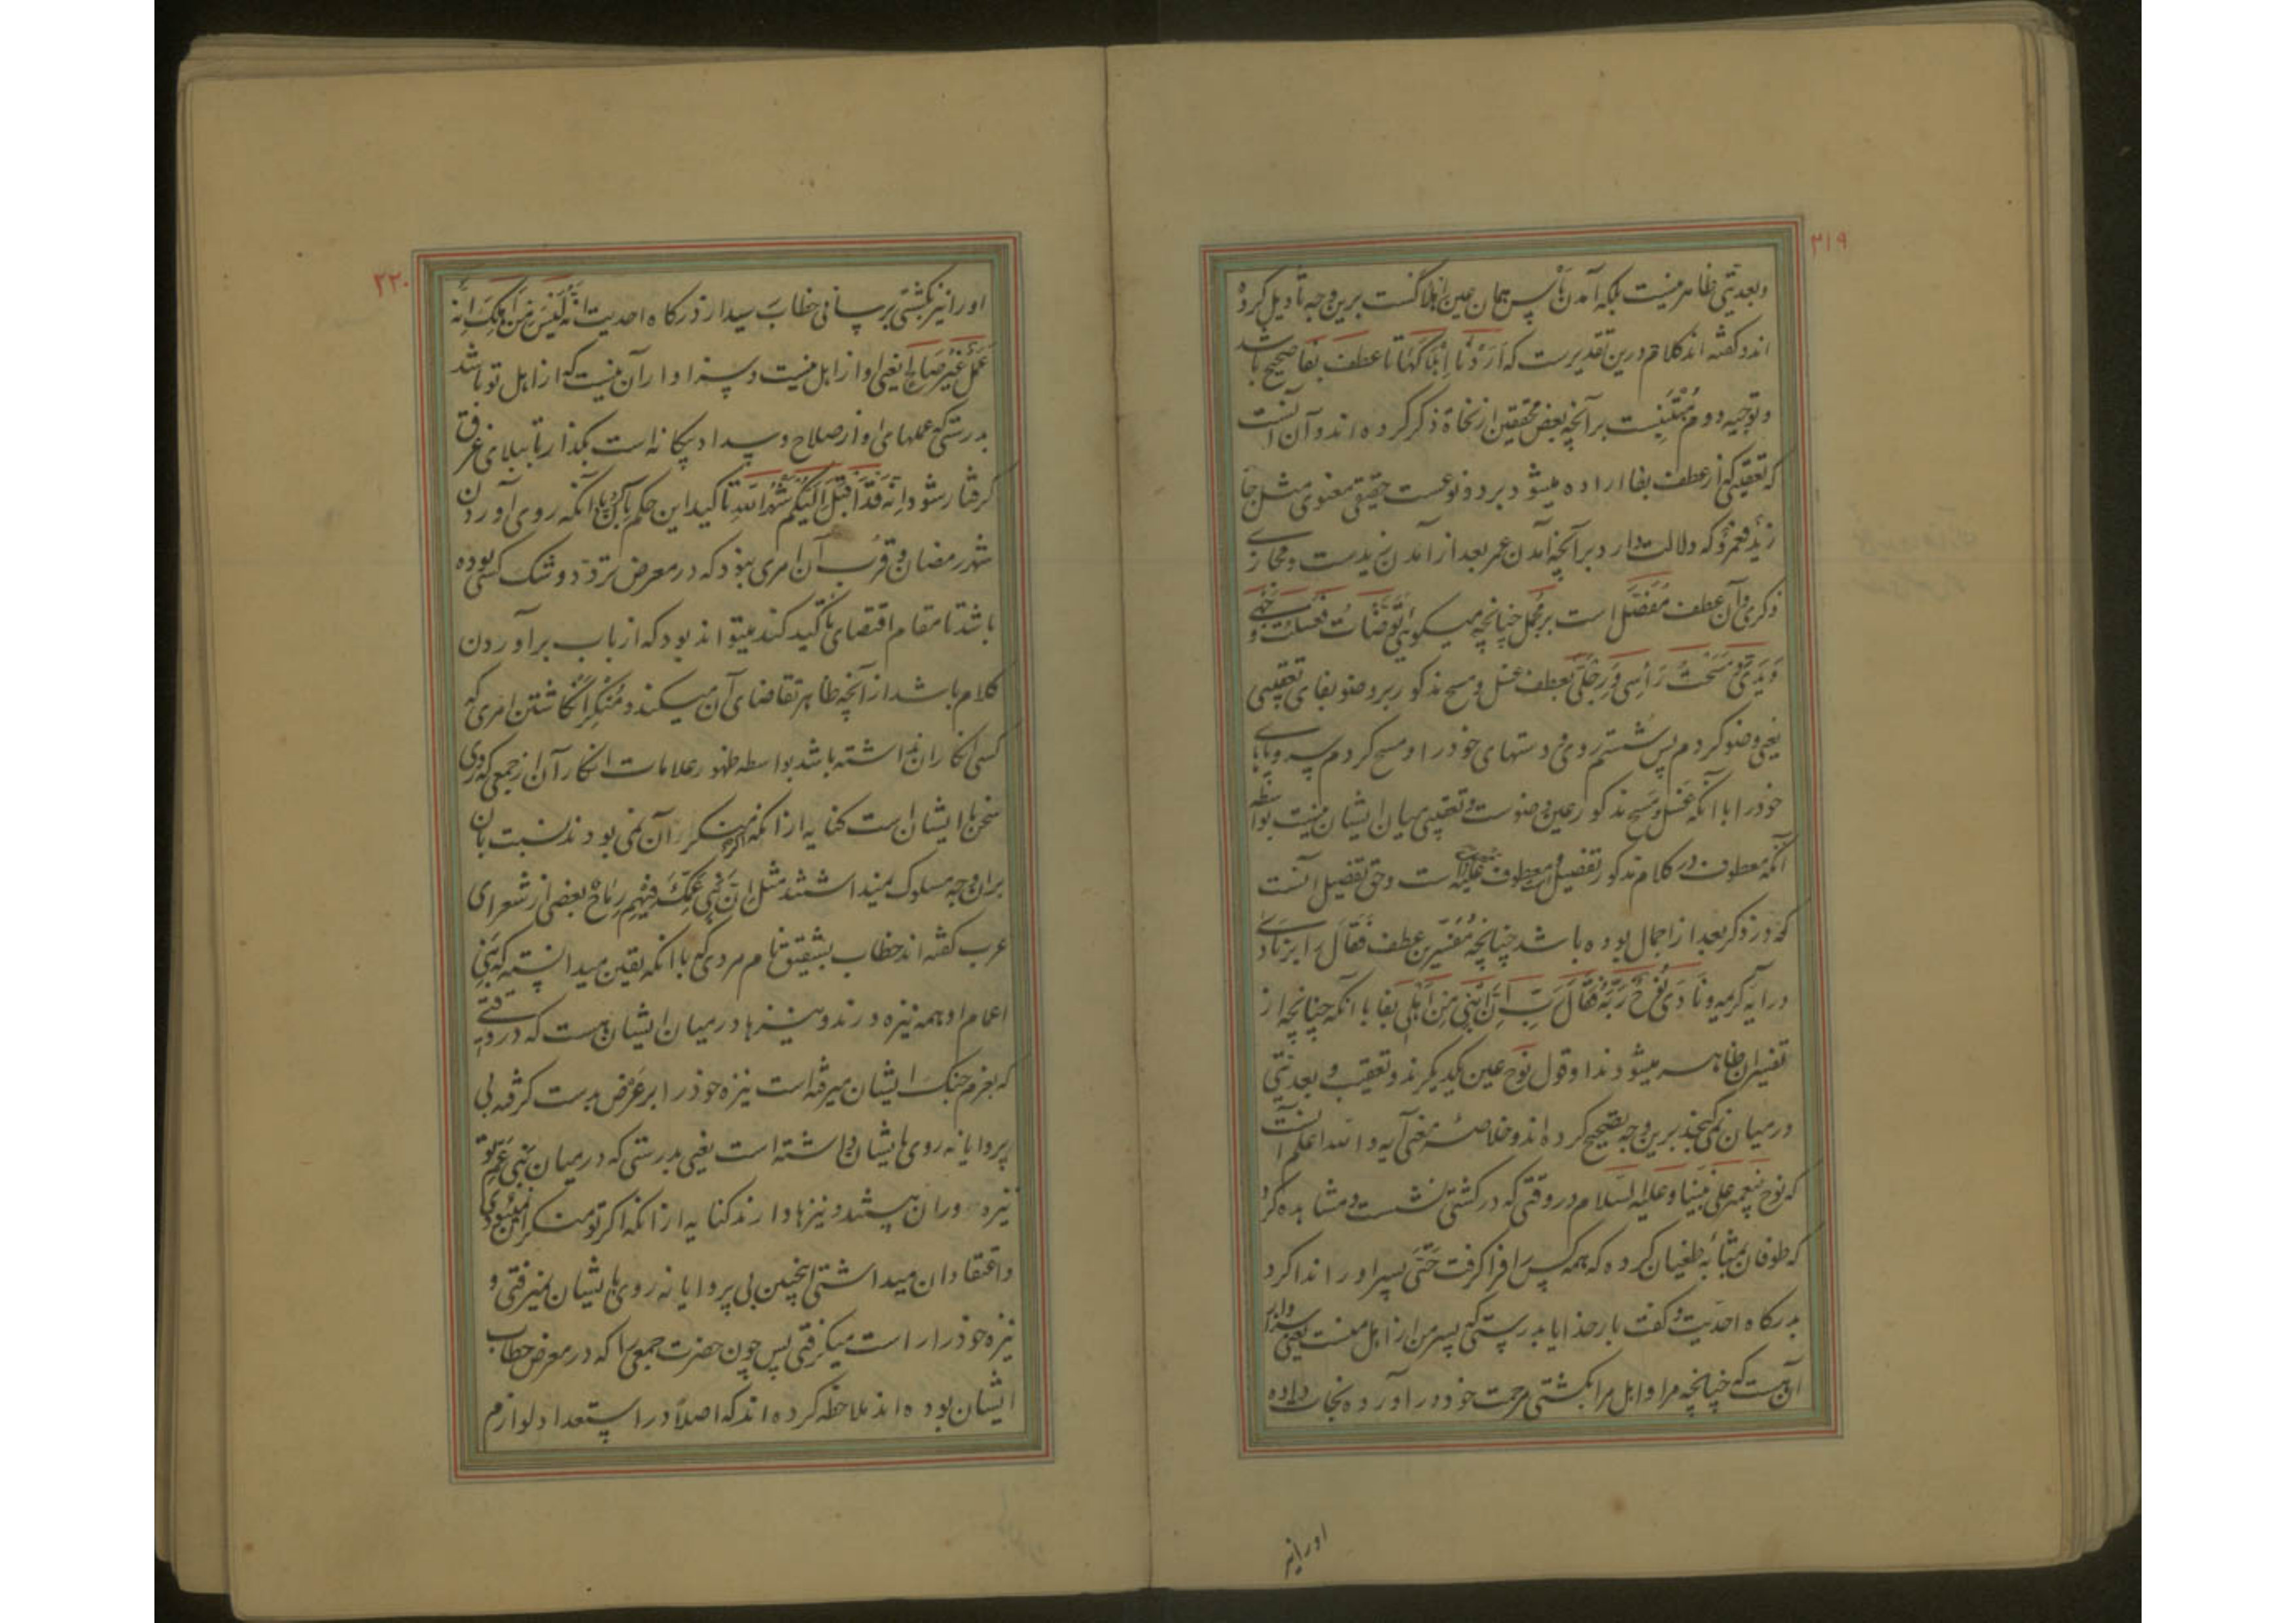 ۲۱۹
وبعدیتی ظاهر نیست بلکه آمدن بأس همان عین اهلاکست برین وجه تأویل کرده
اند و گفته اند کلام درین تقدیرست که اردنا اهلاکها تا عطف بفا صحیح باشد
و توجیه دوم مبتنیست برآنچه بعض محققین از نحاة ذکر کرده اند و آن آنست
که تعقیبی که از عطف بفا اراده میشود بر دو نوعست حقیقی معنوی مثل جا
زید فعمرو که دلالت دارد برآنچه آمدن عمر بعد از آمدن زیدست و مجازی
ذکری و آن عطف مفصل است بر مجمل چنانچه میگوئی توضأت فغسلت وجهی و
ویدی و مسحت رأسی و رجلی بعطف غسل و مسح مذکور بر وضو بفای تعقیبی
یعنی وضو کردم پس شستم روی و دستهای خود را و مسح کردم سر و پای
خود را با آنکه غسل و مسح مذکور عین وضوست و تعقیبی میان ایشان نیست بواسطه
آنکه معطوف در کلام مذکور تفصیل معطوف علیه است و حق تفصیل آنست
که در ذکر بعد از اجمال بوده باشد چنانچه مفسرین عطف فقال را بر نادی
در آیه کریمه و نادی نوح ربه فقال رب ان ابنی من اهلی بفا با آنکه چنانچه از
تفسیر آن ظاهر میشود ندا و قول نوح عین یکدیگرند و تعقیب و بعدیتی
در میان نمی گنجد برین وجه تصحیح کرده اند و خلاصه معنی آیه و الله اعلم آنست
که نوح پیغمبر علی نبینا و علیه السلام در وقتی که در کشتی نشست و مشاهده کرد
که طوفان بمثابه طغیان کرده که همه کس را فرا گرفت حتی پسر او را ندا کرد
بدرگاه احدیت و گفت بار خدایا بدرستی که پسر من از اهل منست یعنی سزاوار
آن هست که چنانچه مرا و اهل مرا بکشتی مرحمت خود در آورده نجات داده
او را نیز
۲۲۰
او را نیز بکشتی برسانی خطاب رسید از درگاه احدیت انه لیس من اهلک انه
عمل غیر صالح یعنی او از اهل نیست و سزاوار آن نیست که از اهل تو باشد
بدرستی که عملهای او از صلاح و سداد بیگانه است بگذار تا ببلای غرق
گرفتار شود و انه قد اقبل الیکم شهر الله تاکید این حکم با آنکه روی آوردن
شهر رمضان و قرب آن امری نبود که در معرض تردد و شک کسی بوده
باشد تا مقام اقتضای تاکید کند میتواند بود که از باب برآوردن
کلام باشد از آنچه ظاهر تقاضای آن میکند و منکر انگاشتن امری که
کسی انکار آن نداشته باشد بواسطه ظهور علامات انکار آن از جمعی که روی
سخن با ایشان است کنایه از آنکه اگر منکر آن نمی بودند نسبت بآن
بر آن وجه مسلوک نمیداشتند مثل ان بنی عمک فیهم رماح بعضی از شعرای
عرب گفته اند خطاب بشقیق نام مردی که با آنکه یقین میدانسته که بنی
اعمام او همه نیزه ورند و نیزها در میان ایشان هست که در وقتی
که بعزم جنگ ایشان میرفته است نیزه خود را بر عرض بدست گرفته بی
پروایانه روی بایشان داشته است یعنی بدرستی که در میان بنی عم تو
نیزه وران هستند و نیزها دارند کنایه از آنکه اگر تو منکر این نمیبودی
و اعتقاد آن میداشتی اینچنین بی پروایانه روی بایشان نمیرفتی و
نیزه خود را راست میگرفتی پس چون حضرت جمعی را که در معرض خطاب
ایشان بوده اند ملاحظه کرده اند که اصلا در استعداد لوازم